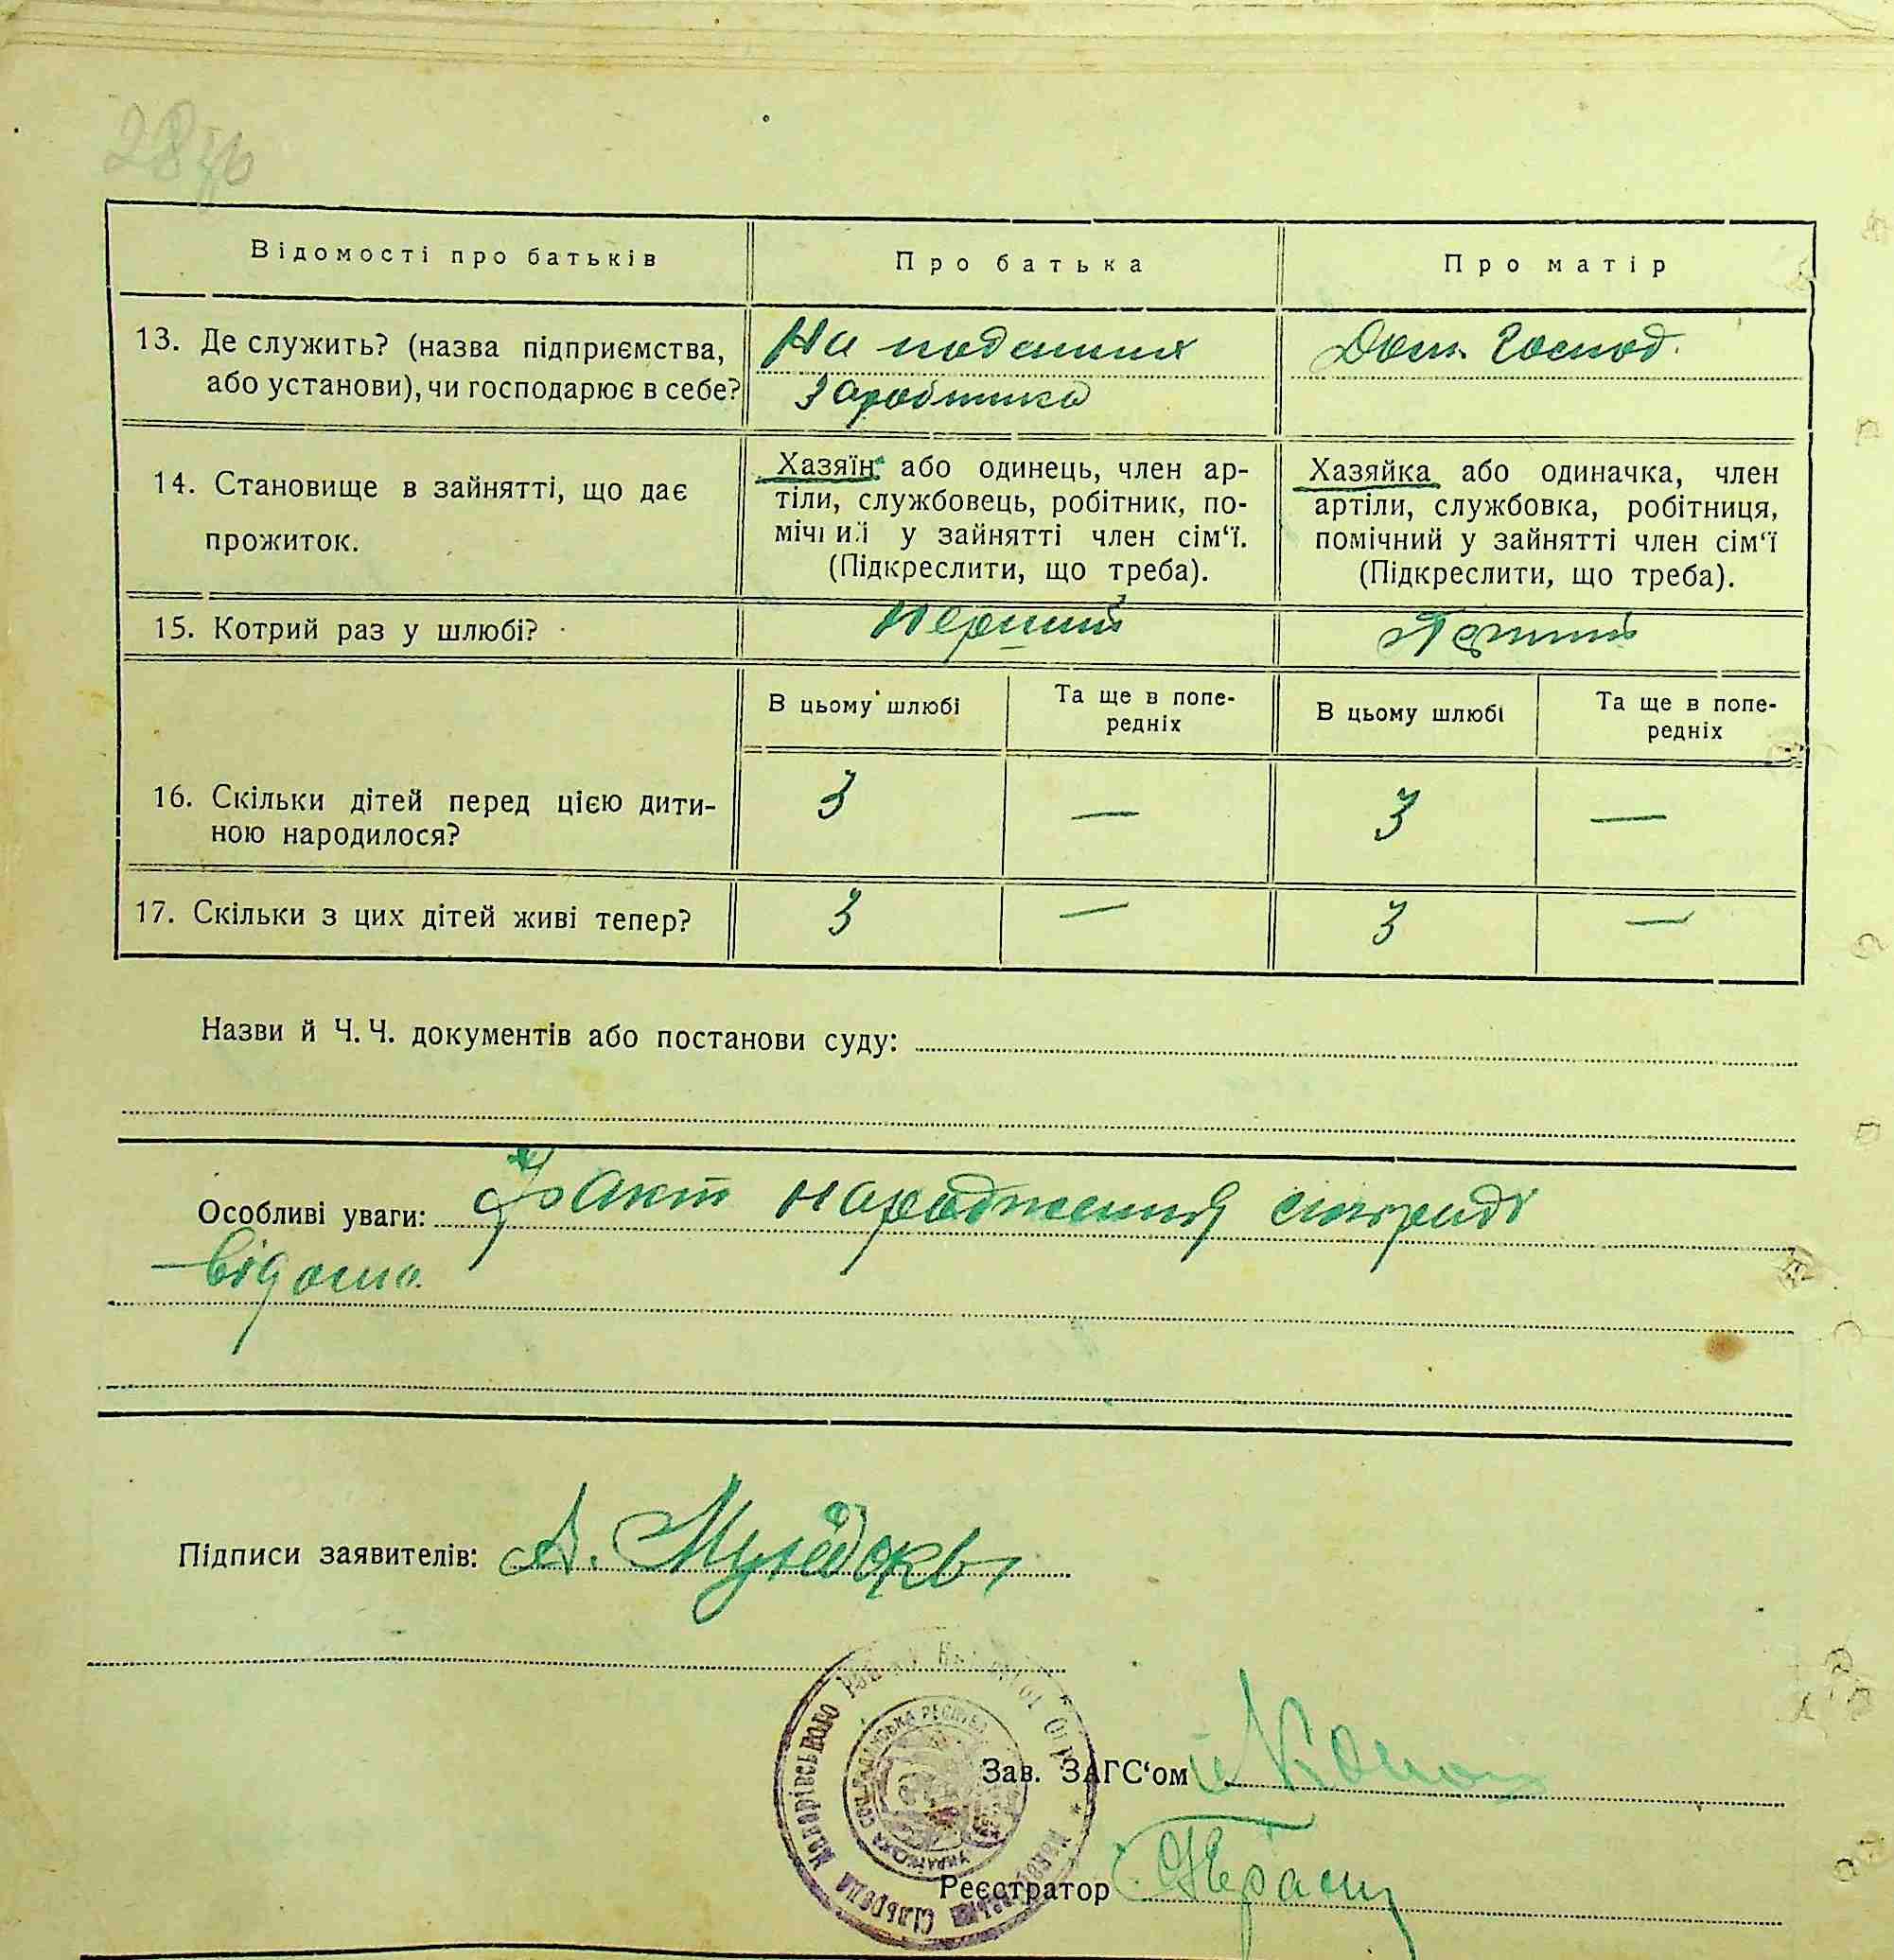 Відомості про батьків
Про батька
Про матір
13. Де служить? (назва підприємства,
або установи), чи господарює в себе?
На поденних
заробітках
Дом. Господ.
14. Становище в зайнятті, що дає
прожиток.
Хазяїн або одинець, член ар-
тіли, службовець, робітник, по-
мічний у зайнятті член сім‘ї.
(Підкреслити, що треба).
Хазяйка або одиначка, член
артіли, службовка, робітниця,
помічний у зайнятті член сім‘ї
(Підкреслити, що треба).
15. Котрий раз у шлюбі?
Перший
Перший
В цьому шлюбі
Та ще в попе-
редніх
В цьому шлюбі
Та ще в попе-
редніх
16. Скільки дітей перед цією дити-
ною народилося?
3 — 3 —
17. Скільки з цих дітей живі тепер?
3 — 3 —
Назви й Ч. Ч. документів або постанови суду:
Особливі уваги: Факт народження сільраді
відомо
Підписи заявителів: А.
Зав. ЗАГС‘ом
Реєстратор